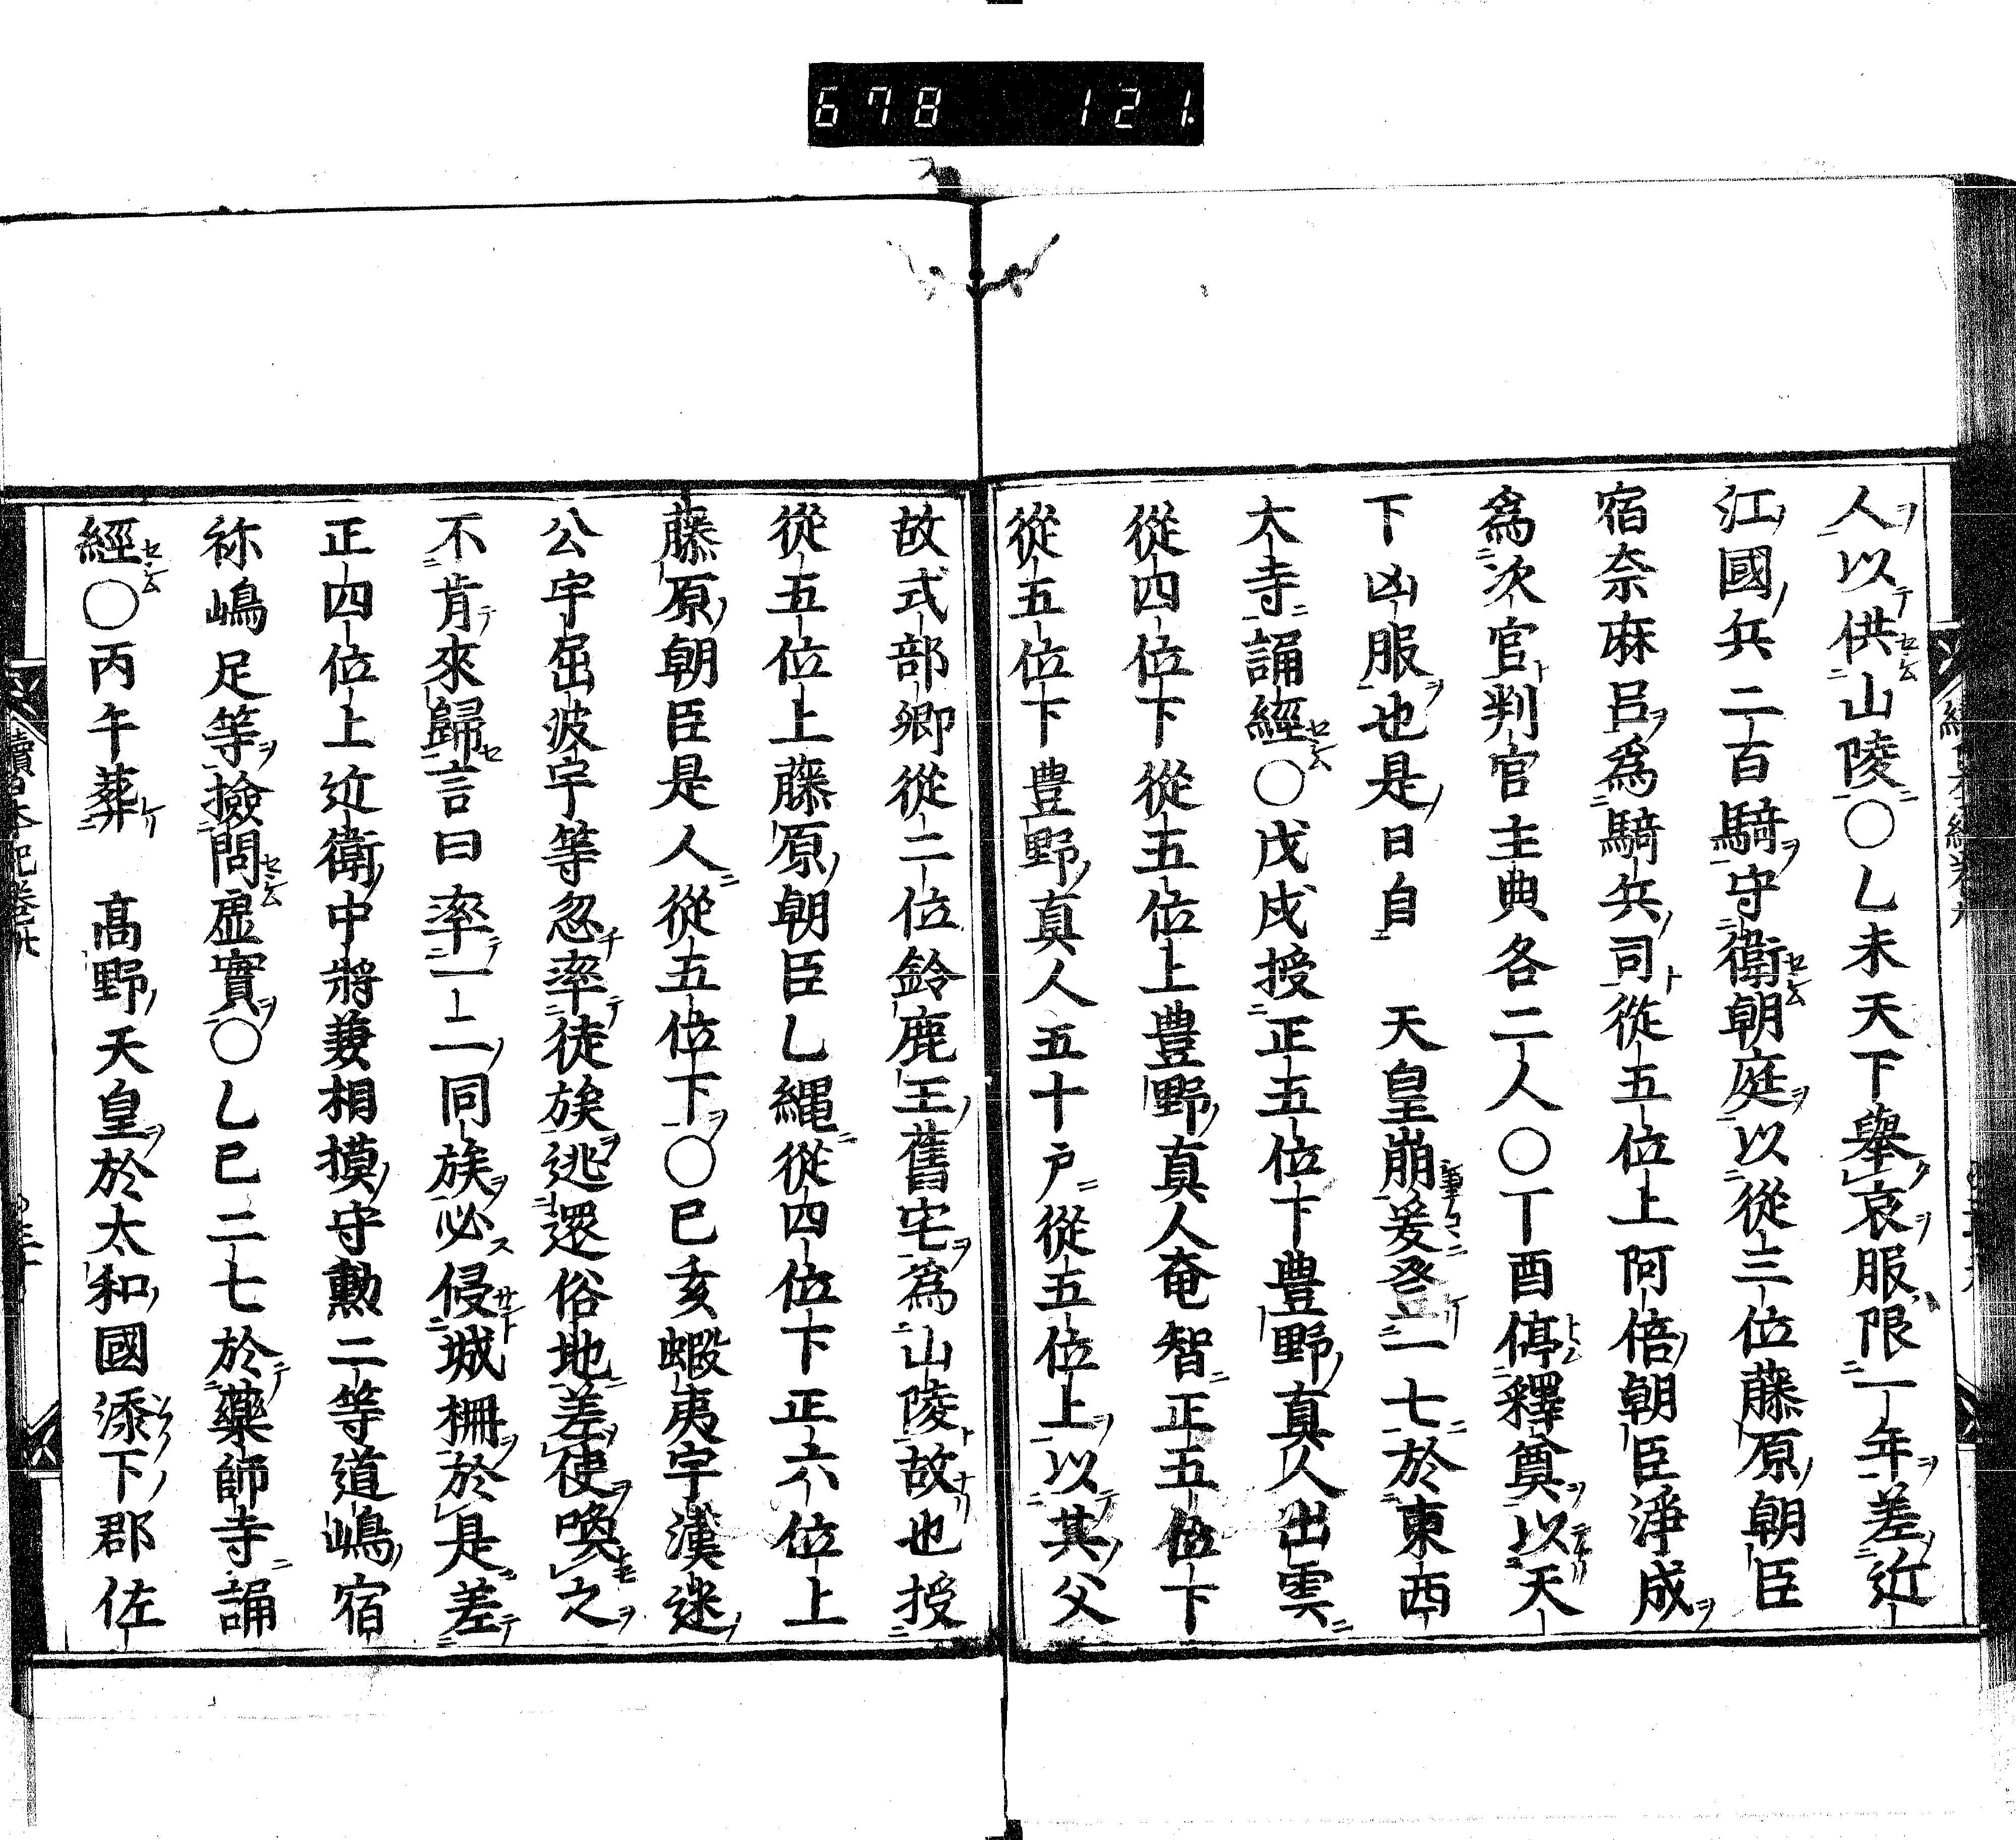 678 121.
人以供山陵○乙未天下舉哀服限一年差近
江國兵二百騎守衛朝庭以從三位藤原朝臣
宿奈麻呂爲騎兵司從五位上阿倍朝臣淨成
爲次官判官主典各二人○丁酉停釋奠以天
下凶服也是日自 天皇崩爰登一七於東西
大寺誦經○戊戌授正五位下豊野真人出雲
從四位下從五位上豊野真人奄智正五位下
從五位下豊野真人五十戸從五位上以其父
故式部卿從二位鈴鹿王舊宅爲山陵故也授
從五位上藤原朝臣乙縄從四位下正六位上
藤原朝臣是人從五位下○已亥蝦夷宇漢迷
公宇屈波宇等忽率徒族逃還俗地差使喚之
不肯來歸言曰率一二同族必侵城柵於是差
正四位上近衛中將兼相摸守勳二等道嶋宿
祢嶋足等撿問虚實○乙巳二七於藥師寺誦
經○丙午葬 高野天皇於太和國添下郡佐